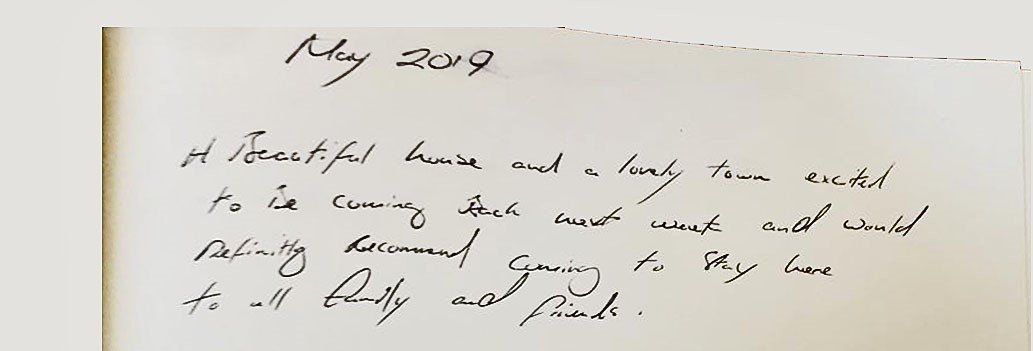 May 2019
A Beautiful house and a lovely town excited
to be coming Back next week and would
Definitly Recommend coming to stay here
to all family and friends.